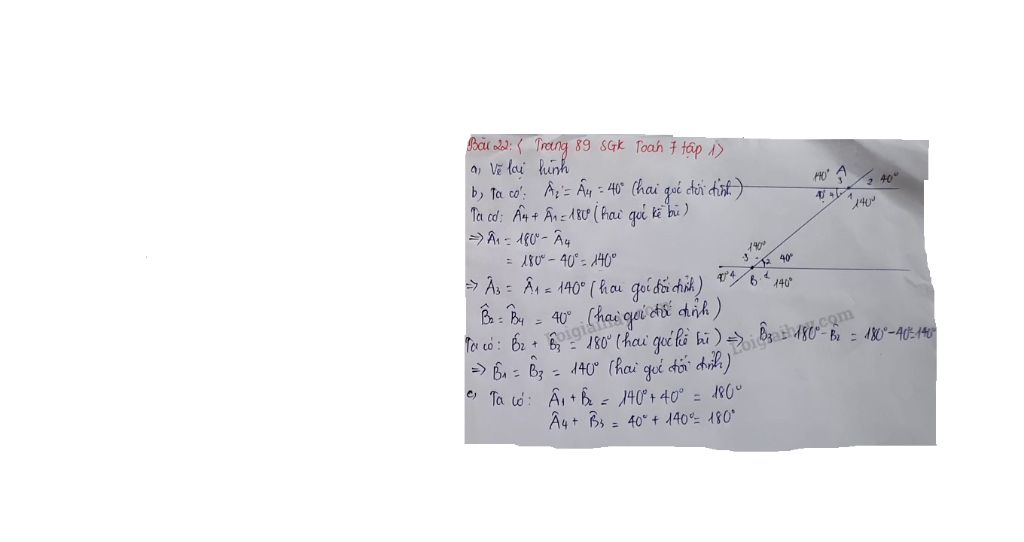 Bài 22: ( Trang 89 SGK Toán 7 tập 1)
a, Vẽ lại hình
b, Ta có: Â2 = Â4 = 40° (hai góc đối đỉnh)
Ta có: Â4 + Â1 = 180° (hai góc kề bù)
=> Â1 = 180° - Â4
= 180° - 40° = 140°
=> Â3 = Â1 = 140° (hai góc đối đỉnh)
B̂2 = B̂4 = 40° (hai góc đối đỉnh)
Ta có: B̂2 + B̂3 = 180° (hai góc kề bù) => B̂3 = 180° - B̂2 = 180° - 40° = 140°
=> B̂1 = B̂3 = 140° (hai góc đối đỉnh)
c, Ta có: Â1 + B̂2 = 140° + 40° = 180°
Â4 + B̂3 = 40° + 140° = 180°
A
140° 3 2 40°
40° 4 1 140°
140°
3 2 40°
40° 4 B 1 140°
Loigiaihay.com
Loigiaihay.com